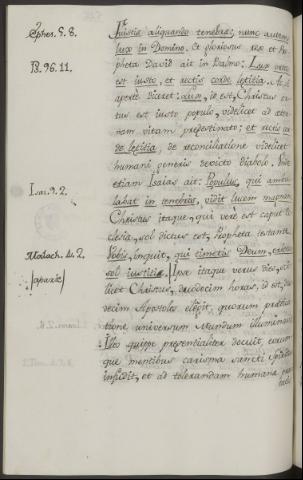 Ephes. 5. 8.
Fuistis aliquando tenebrae; nunc autem
lux in Domino. Et gloriosus rex et Pro-
Ps. 96. 11.
pheta David ait in Psalmo: Lux orta
est iusto, et rectis corde letitia. Ac si
aperte diceret: Lux, id est, Christus or-
tus est iusto populo, videlicet ad eter-
nam vitam predestinato; et rectis cor-
de letitia, de reconciliatione videlicet
humani generis devicto diabolo. Hinc
Isai. 9. 2.
etiam Isaias ait: Populus, qui ambu-
labat in tenebris, vidit lucem magnam
Christus itaque, qui vere est caput
clesia, sol dictus est, Propheta testante
Malach. 4. 2.
Vobis, inquit, qui timetis Deum, orietur
sol iustitie. Ipse itaque verus dies, vide-
licet Christus, duodecim horas, id est, duo-
decim Apostolos elegit, quorum predica-
tione universum Mundum illuminavit
Istos quippe presentialiter docuit, eorum-
que mentibus carisma sancti Spiritus
infudit, et ad tolerandam humana